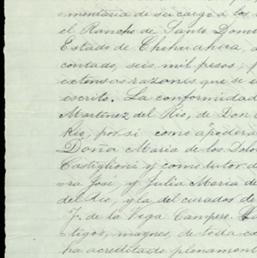 mentaria de su cargo á los
el Rancho de Santo Dom
Estado de Chihuahua, a
contado, seis mil pesos; p
extensas razones que se e
escrito. La conformidad
Martinez del Rio, de Don
Rio, por si y como apodera
Doña Maria de los Dolo
Castiglioni y como tutor d
ra José, y Julia Maria de
del Rio, y la del curador de
J. de la Vega Campero.
tigos, mayores, de toda co
ha acreditado plenament